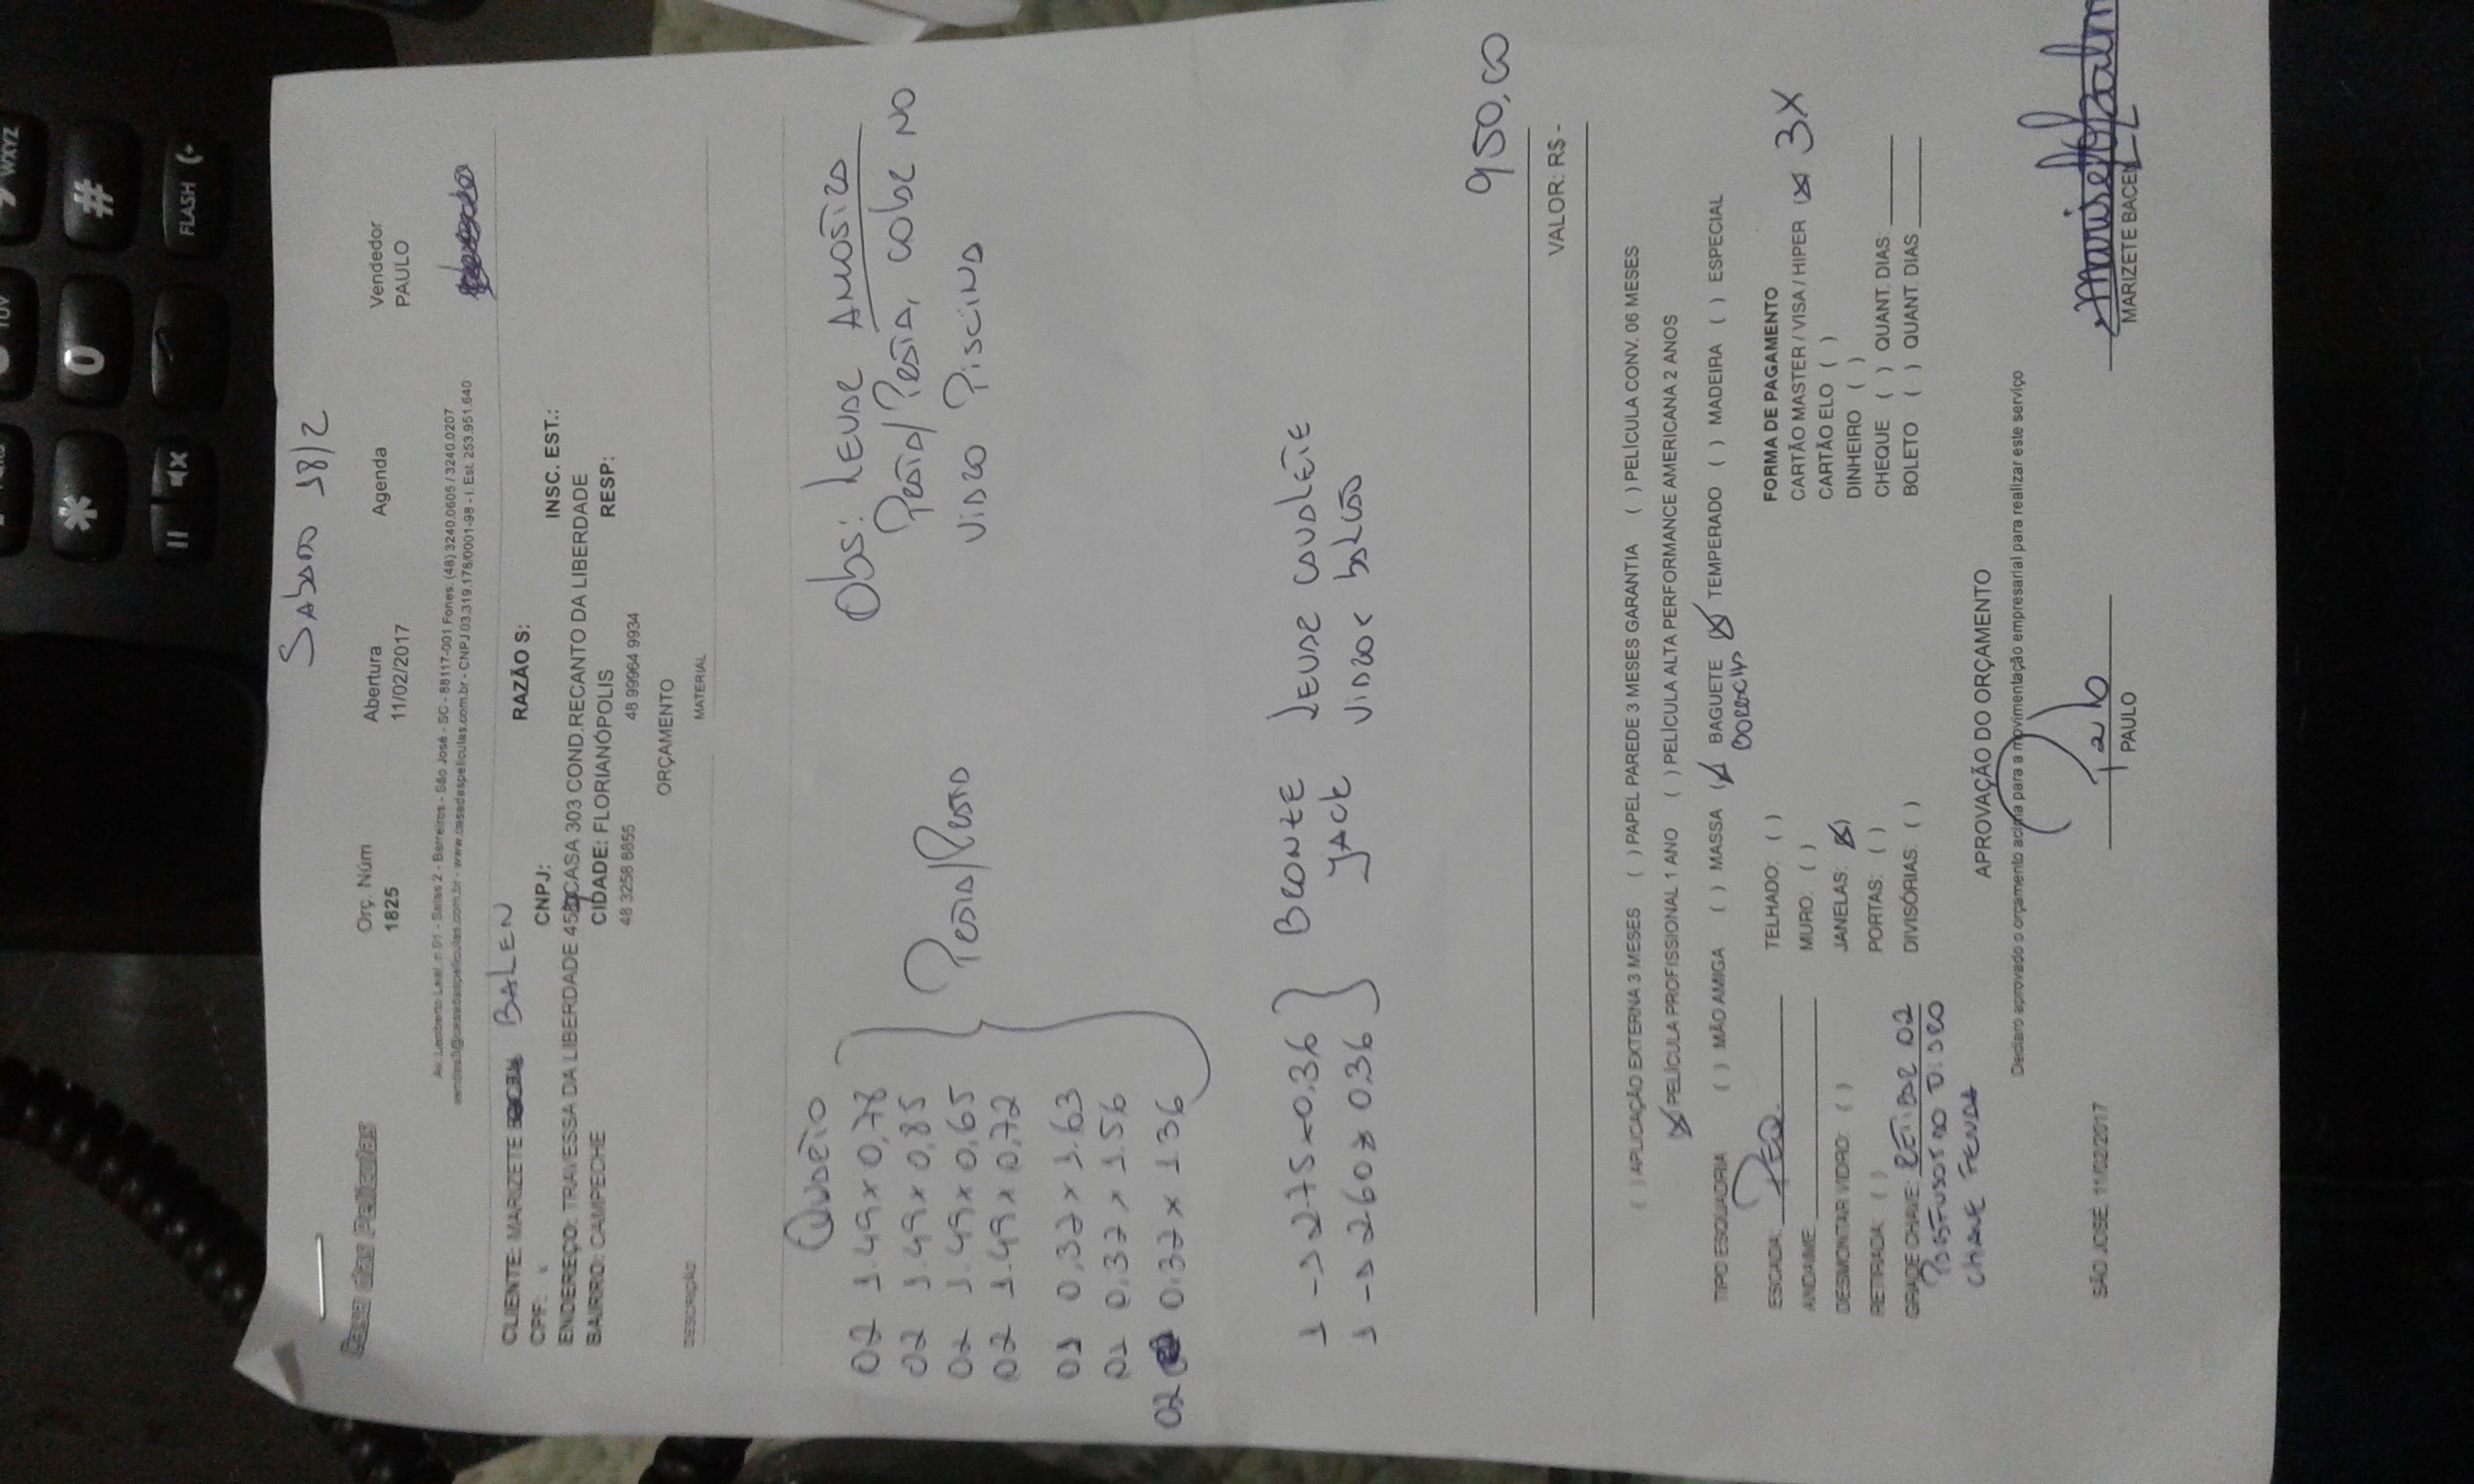 SÁbADO 18/2
Casa das Películas
Orç. Núm Abertura Agenda Vendedor
1825 11/02/2017 PAULO
Av. Leoberto Leal, n 91 - Salas 2 - Barreiros - São José - SC - 88117-001 Fones: (48) 3240.0605 / 3240.0207
vendas3@casadaspeliculas.com.br - www.casadaspeliculas.com.br - CNPJ 03.319.178/0001-98 - I. Est. 253.951.640
CLIENTE: MARIZETE BALEN RAZÃO S:
CPF: CNPJ: INSC. EST.:
ENDEREÇO: TRAVESSA DA LIBERDADE CASA 303 COND.RECANTO DA LIBERDADE
BAIRRO: CAMPECHE CIDADE: FLORIANÓPOLIS RESP:
48 3258 8855 48 99964 9934
ORÇAMENTO
DESCRIÇÃO: MATERIAL
QUADRO
Obs: LEVAR AMOSTRA
02 1.49x0,78
PRATA/PRATA, COBRE NO
02 1.49x0,85
PRATA/PRATA
02 1.49x0,65
VIDRO PISCINA
02 1.49x0,72
01 0,37x1.63
02 0,37x1.56
02 0.37x1.36
1 -> 2.75x0.36 } BRONZE LEVAR CAVALETE
1 -> 260x036 } JACK VIDROX bALCÃO
950,00
VALOR: R$ -
( ) APLICAÇÃO EXTERNA 3 MESES ( ) PAPEL PAREDE 3 MESES GARANTIA ( ) PELÍCULA CONV. 06 MESES
(X) PELÍCULA PROFISSIONAL 1 ANO ( ) PELÍCULA ALTA PERFORMANCE AMERICANA 2 ANOS
TIPO ESQUADRIA ( ) MÃO AMIGA ( ) MASSA (X) BAGUETE (X) TEMPERADO ( ) MADEIRA ( ) ESPECIAL
BORRACHA
ESCADA: PEQ TELHADO: ( ) FORMA DE PAGAMENTO
ANDAIME: MURO: ( ) CARTÃO MASTER / VISA / HIPER (X) 3X
DESMONTAR VIDRO: ( ) JANELAS: (X) CARTÃO ELO ( )
RETIRADA: ( ) PORTAS: ( ) DINHEIRO ( )
GRADE CHAVE: RETIRAR 02 DIVISÓRIAS: ( ) CHEQUE ( ) QUANT. DIAS:
PARAFUSOS NO VIDRO BOLETO ( ) QUANT. DIAS
CHAVE FENDA
APROVAÇÃO DO ORÇAMENTO
Declaro aprovado o orçamento acima para a movimentação empresarial para realizar este serviço
SÃO JOSÉ, 11/02/2017
Paulo
PAULO MARIZETE
* 0 #
FLASH
WXYZ